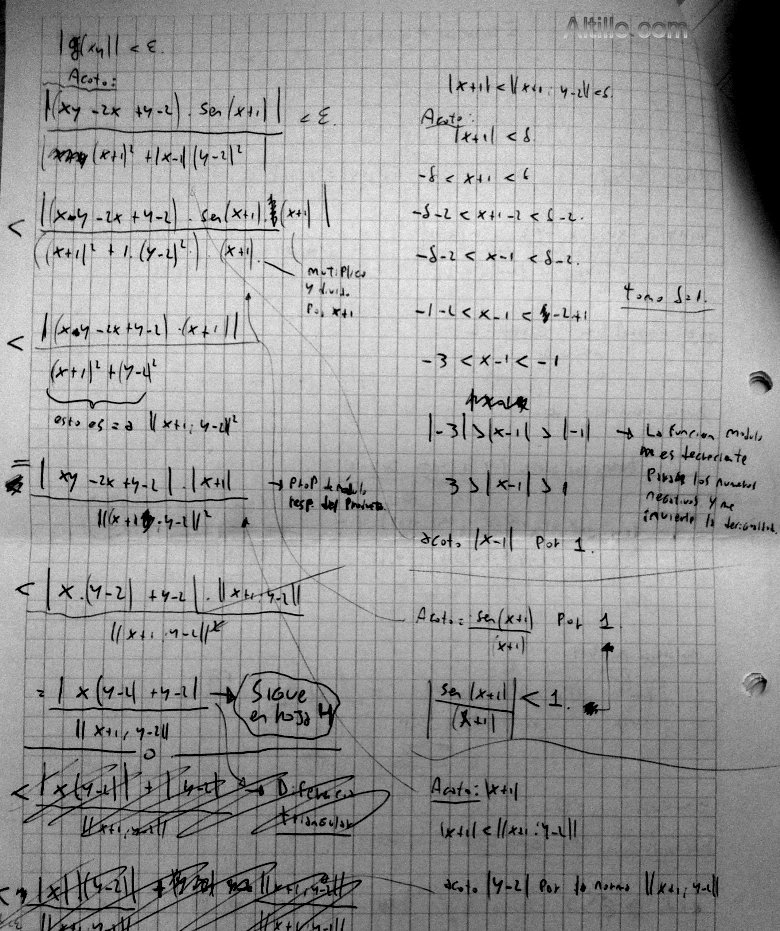 Altillo.com
|g(xy)| < ε.
Acoto:
|(xy -2x +y-2) . sen(x+1)| < ε.
|(x+1)² + |x-1| (y-2)²|
< |(x.y -2x +y-2) . sen(x+1). (x+1)|
((x+1)² + 1.(y-2)²) . (x+1).
multiplico
y divido
Por x+1
< |(x.y -2x +y-2) . (x+1)|
(x+1)² + (y-2)²
esto es = a ||x+1; y-2||²
= |xy -2x +y-2| . |x+1| → Prop de módulo
resp. del Producto.
||(x+1; y-2||²
< |x.(y-2) +y-2| . ||x+1; y-2||
||x+1; y-2||²
= |x(y-2) +y-2| → Sigue
en hoja 4
||x+1; y-2||
< |x(y-2)| + |y-2| → Diferencia
triangular
||x+1; y-2||
|x+1| < ||x+1; y-2|| < δ.
Acoto:
|x+1| < δ.
-δ < x+1 < δ
-δ-2 < x+1-2 < δ-2.
-δ-2 < x-1 < δ-2.
tomo δ=1.
-1-2 < x-1 < -2+1
-3 < x-1 < -1
|-3| > |x-1| > |-1| → La funcion modulo
es decreciente
Para los numeros
negativos y me
invierte la desigualdad.
3 > |x-1| > 1
acoto |x-1| Por 1.
Acoto = sen(x+1) Por 1.
(x+1)
|sen(x+1)| < 1.
(x+1)
Acoto: |x+1|
|x+1| < ||x+1; y-2||
acoto |y-2| Por la norma ||x+1; y-2||